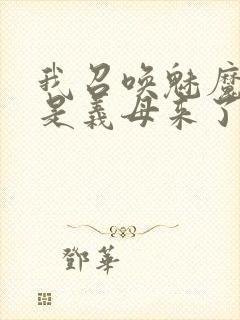 我召唤魅魔
是義母来了
鄧華